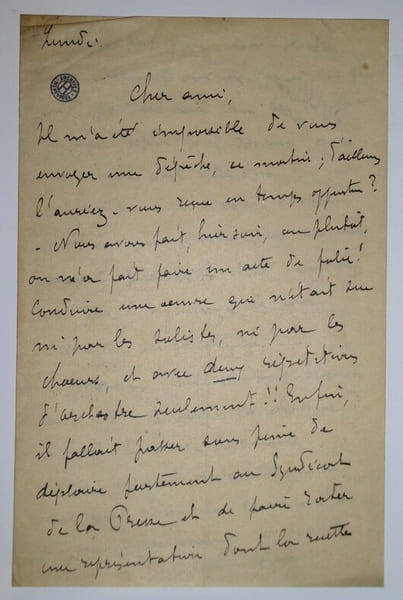 Lundi.
Cher ami,
Il m'a été impossible de vous
envoyer une dépêche, ce matin ; d'ailleurs
l'auriez-vous reçue en temps opportun ?
- Nous avons fait, hier soir, ou plutôt,
on m'a fait faire un acte de folie !
Conduire une oeuvre qui n'était sue
ni par les solistes, ni par les
choeurs, et avec deux répétitions
d'orchestre seulement !! Enfin,
il fallait passer sous peine de
déplaire fortement au Syndicat
de la Presse et de faire rater
une représentation dont la recette